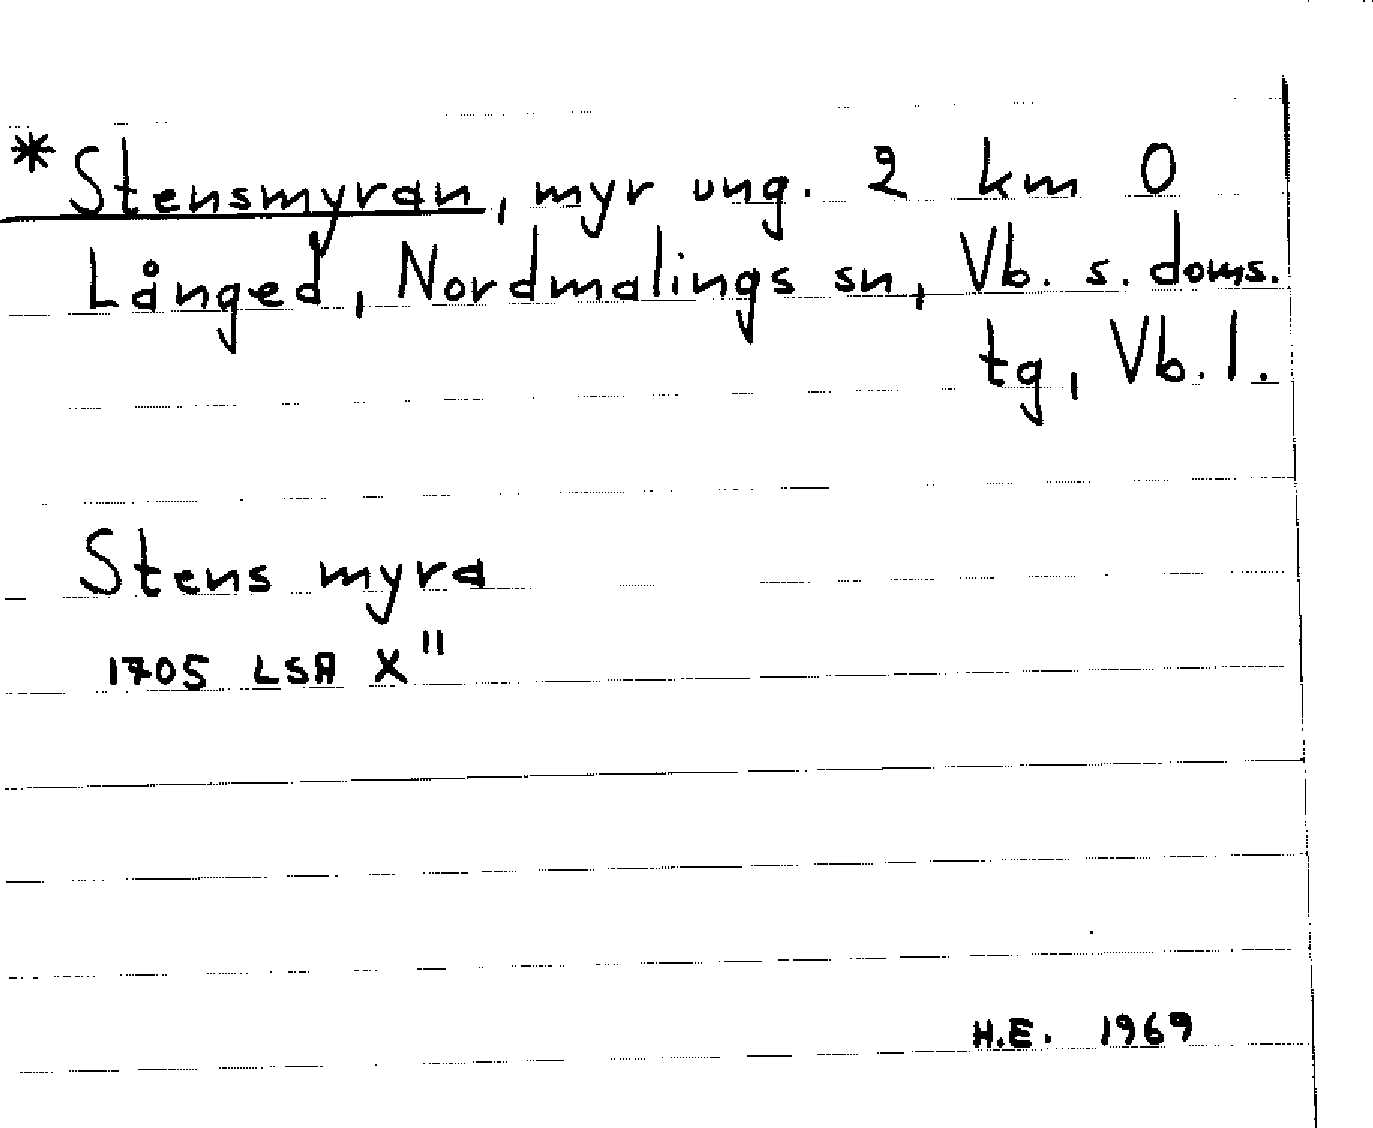 * Stensmyran, myr ung. 2 km O
Långed, Nordmalings sn, Vb. s. doms.
tg, Vb. l.
Stens myra
1705 LSA X"
H.E. 1969